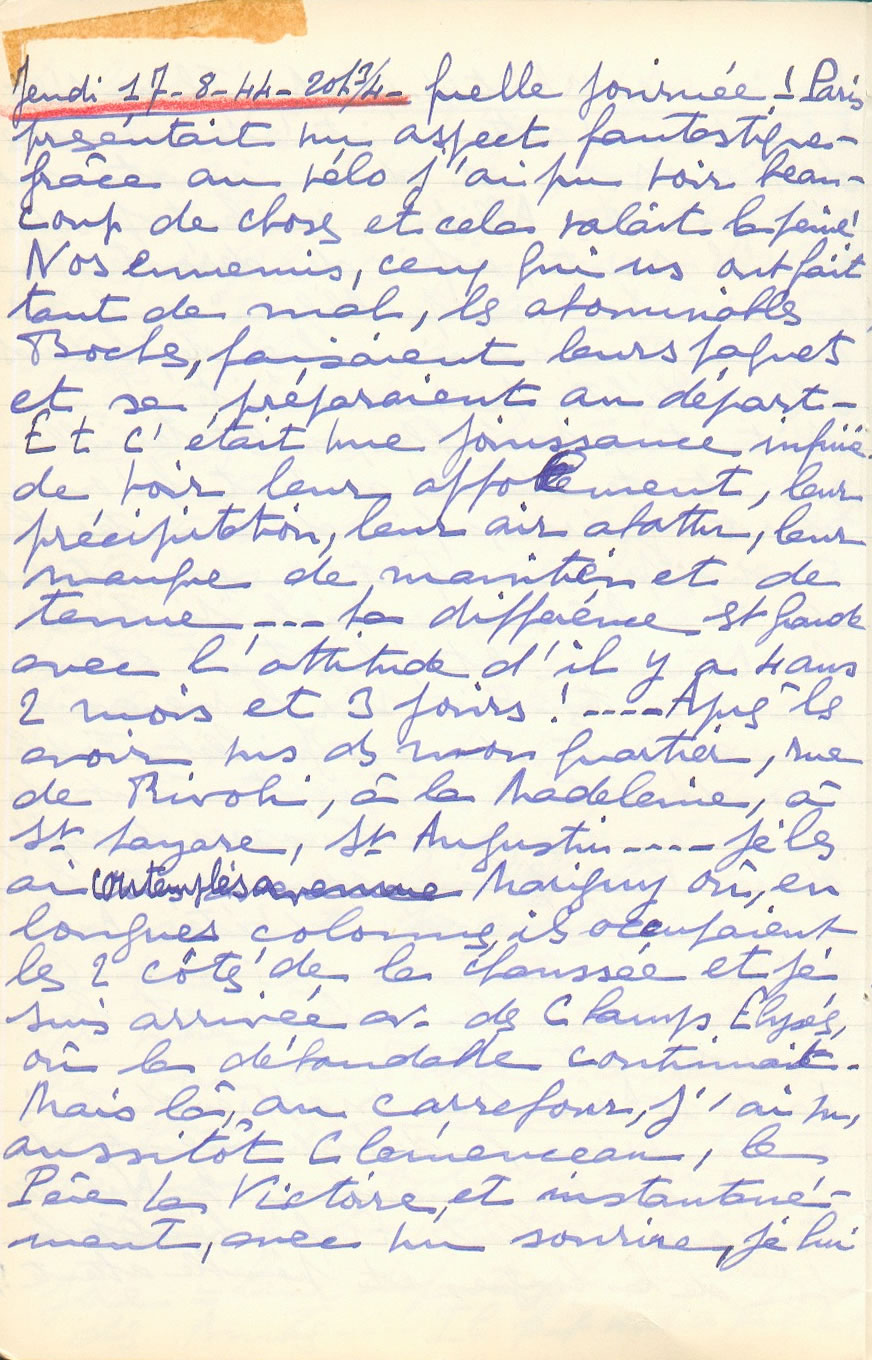 Jeudi 17-8-44- 20h 3/4- Quelle journée ! Paris
présentait un aspect fantastique-
Grâce au vélo j'ai pu voir beau-
coup de choses et cela valait la peine !
Nos ennemis, ceux qui ns ont fait
tant de mal, les abominables
Boches, faisaient leurs paquets
et se préparaient au départ-
Et c'était une jouissance infinie
de voir leur affolement, leur
précipitation, leur air abattu, leur
manque de maintien et de
tenue ---- La différence est grande
avec l'attitude d'il y a 4 ans
2 mois et 3 jours ! ---- Après les
avoir vus ds mon quartier, rue
de Rivoli, à la Madeleine, à
St Lazare, St Augustin ---- je les
ai contemplés avenue Marigny où, en
longues colonnes, ils occupaient
les 2 côtés de la chaussée et je
suis arrivée av. des Champs Elysées,
où la débandade continuait.
Mais là, au carrefour, j'ai vu,
aussitôt Clemenceau, le
Père la Victoire, et instantané-
ment, avec un sourire, je lui